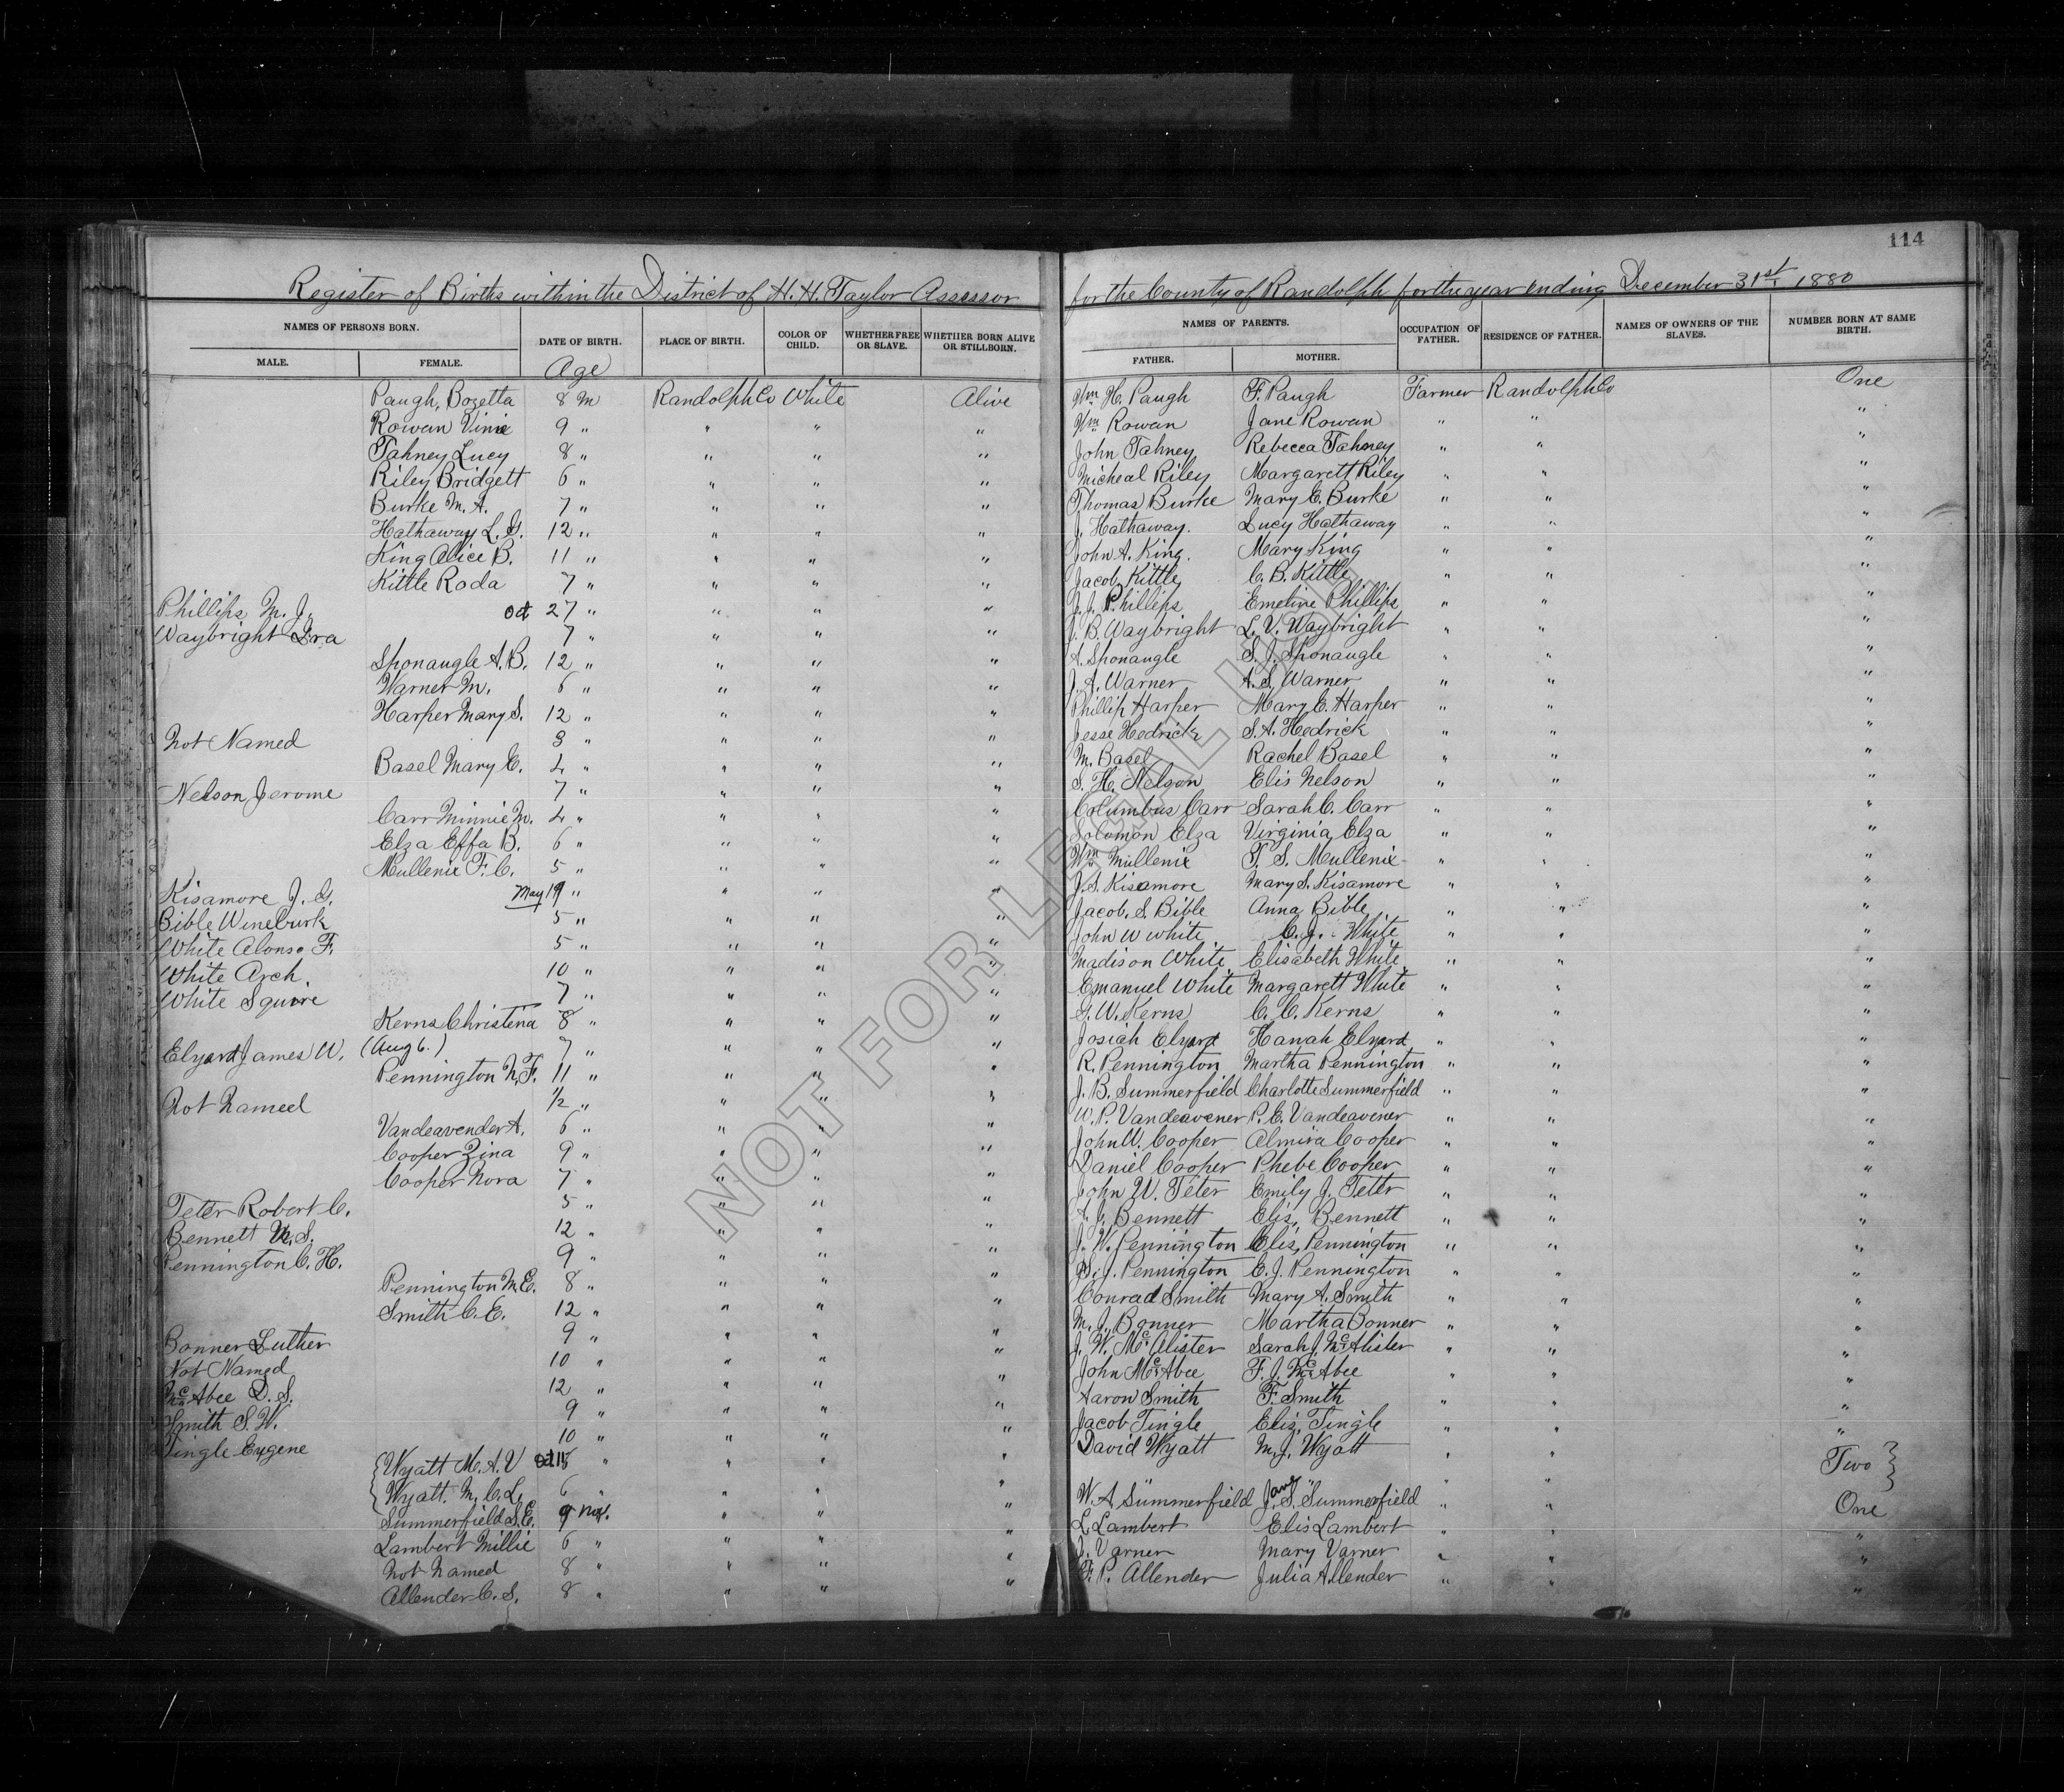 114
Register of Births within the District of H. H. Taylor Assessor for the County of Randolph for the year ending December 31st 1880
NAMES OF PERSONS BORN. DATE OF BIRTH. PLACE OF BIRTH. COLOR OF CHILD. WHETHER FREE OR SLAVE. WHETHER BORN ALIVE OR STILLBORN. NAMES OF PARENTS. OCCUPATION OF FATHER. RESIDENCE OF FATHER. NAMES OF OWNERS OF THE SLAVES. NUMBER BORN AT SAME BIRTH.
MALE. FEMALE. Age FATHER. MOTHER.
Paugh, Bozetta 8 m Randolph Co White Alive Wm H. Paugh F. Paugh Farmer Randolph Co One
Rowan Vinie 9 " " " " Wm Rowan Jane Rowan " " "
Tahney Lucy 8 " " " " John Tahney Rebecca Tahney " " "
Riley Bridgett 6 " " " " Micheal Riley Margarett Riley " " "
Burke M. A. 7 " " " " Thomas Burke Mary C. Burke " " "
Hathaway L. G. 12 " " " " J. Hathaway. Lucy Hathaway " " "
King Alice B. 11 " " " " John A. King. Mary King " " "
Kittle Roda 7 " " " " Jacob Kittle C. B. Kittle " " "
Phillips M. J. Oct 27 " " " " J. J. Phillips Emeline Phillips " " "
Waybright Ira 7 " " " " J. B. Waybright L. V. Waybright " " "
Shonaugle A. B. 12 " " " " A. Shonaugle S. J. Shonaugle " " "
Warner M. 6 " " " " J. A. Warner A. S. Warner " " "
Harper Mary S. 12 " " " " Phillip Harper Mary C. Harper " " "
Not Named 3 " " " " Jesse Hedrick S. A. Hedrick " " "
Basel Mary C. 4 " " " " M. Basel Rachel Basel " " "
Nelson Jerome 7 " " " " S. H. Nelson Elis Nelson " " "
Carr Minnie M. 4 " " " " Columbus Carr Sarah C. Carr " " "
Elza Effa B. 6 " " " " Solomon Elza Virginia Elza " " "
Mullenix F. C. 5 " " " " Wm Mullenix T. S. Mullenix " " "
Kisamore J. G. May 19 " " " " J. S. Kisamore Mary S. Kisamore " " "
Bible Wineburk 5 " " " " Jacob. S. Bible Anna Bible " " "
White Alonso F. 5 " " " " John W White C. J. White " " "
White Arch. 10 " " " " Madison White Elisabeth White " " "
White Squire 7 " " " " Emanuel White Margarett White " " "
Kerns Christena 8 " " " " G. W. Kerns C. C. Kerns " " "
Elyard James W. (Aug 6.) 7 " " " " Josiah Elyard Hanah Elyard " " "
Pennington N. F. 11 " " " " R. Pennington Martha Pennington " " "
Not Named 1/2 " " " " J. B. Summerfield Charlotte Summerfield " " "
Vandeavender A. 6 " " " " W. P. Vandeavener P. C. Vandeavener " " "
Cooper Zina 9 " " " " John W. Cooper Almira Cooper " " "
Cooper Nora 7 " " " " Daniel Cooper Phebe Cooper " " "
Teter Robert C. 5 " " " " John W. Teter Emily J. Teter " " "
Bennett M. S. 12 " " " " A. J. Bennett Elis, Bennett " " "
Pennington C. H. 9 " " " " J. W. Pennington Elis, Pennington " " "
Pennington M. E. 8 " " " " S. J. Pennington C. J. Pennington " " "
Smith C. E. 12 " " " " Conrad Smith Mary A. Smith " " "
Bonner Luther 9 " " " " M. J. Bonner Martha Bonner " " "
Not Named 10 " " " " J. W. McAlister Sarah J. McAlister " " "
McAbee D. S. 12 " " " " John McAbee F. J. McAbee " " "
Smith S. W. 9 " " " " Aaron Smith F. Smith " " "
Tingle Eugene 10 " " " " Jacob Tingle Eliz, Tingle " " "
Wyatt M. A. V Oct " " " " David Wyatt M. J. Wyatt " " Two
Wyatt. M. C. L. 6 " " " " " " " "
Summerfield S. E. 9 Nov. " " " W. A Summerfield Jane S. Summerfield " " One
Lambert Millie 6 " " " " L. Lambert Elis Lambert " " "
Not Named 8 " " " " J. Varner Mary Varner " " "
Allender C. S. 8 " " " " F. P. Allender Julia Allender " " "
NOT FOR LEGAL USE